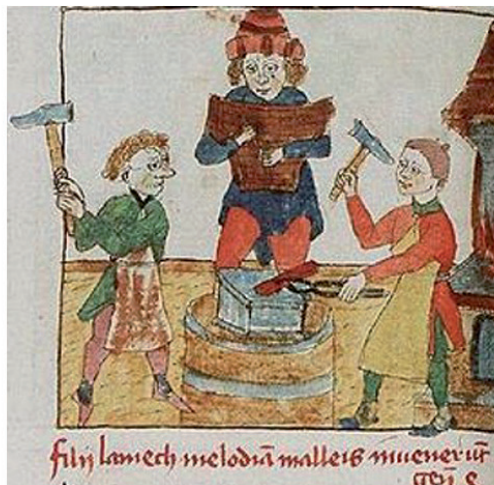 filij lamech melodiā malleis inuenerūt
gen̄